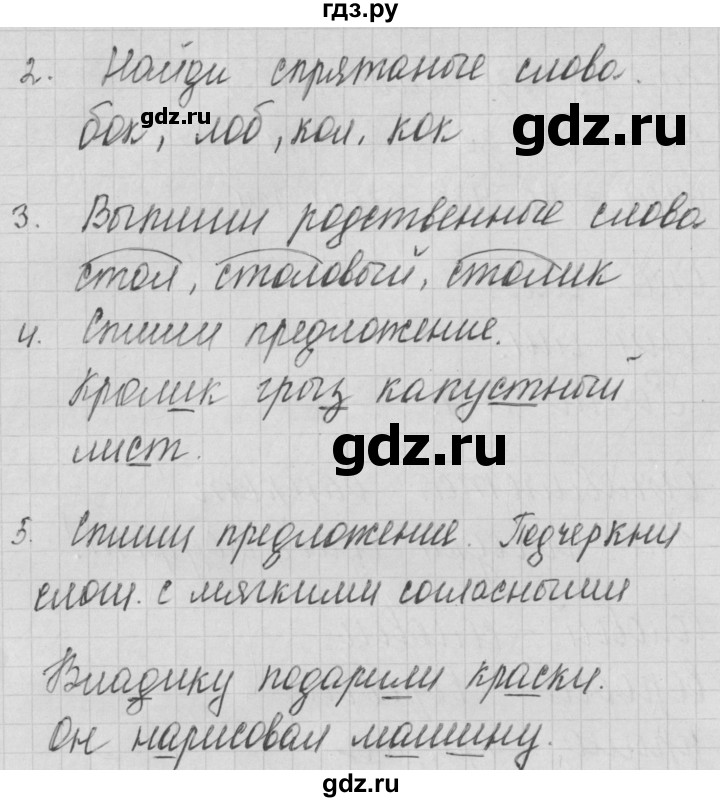 гдз.ру
2. Найди спрятаные слова.
gdz.ru
gdz.ru
бок, лоб, кол, кок
3. Выпиши родственные слова
стол, столовый, столик
4. Спиши предложение.
Кролик грыз капустный
лист.
gdz.ru
5. Спиши предложение. Подчеркни
слоги. с мягкими согласными
Владику подарили краски.
Он нарисовал машину.
gdz.ru